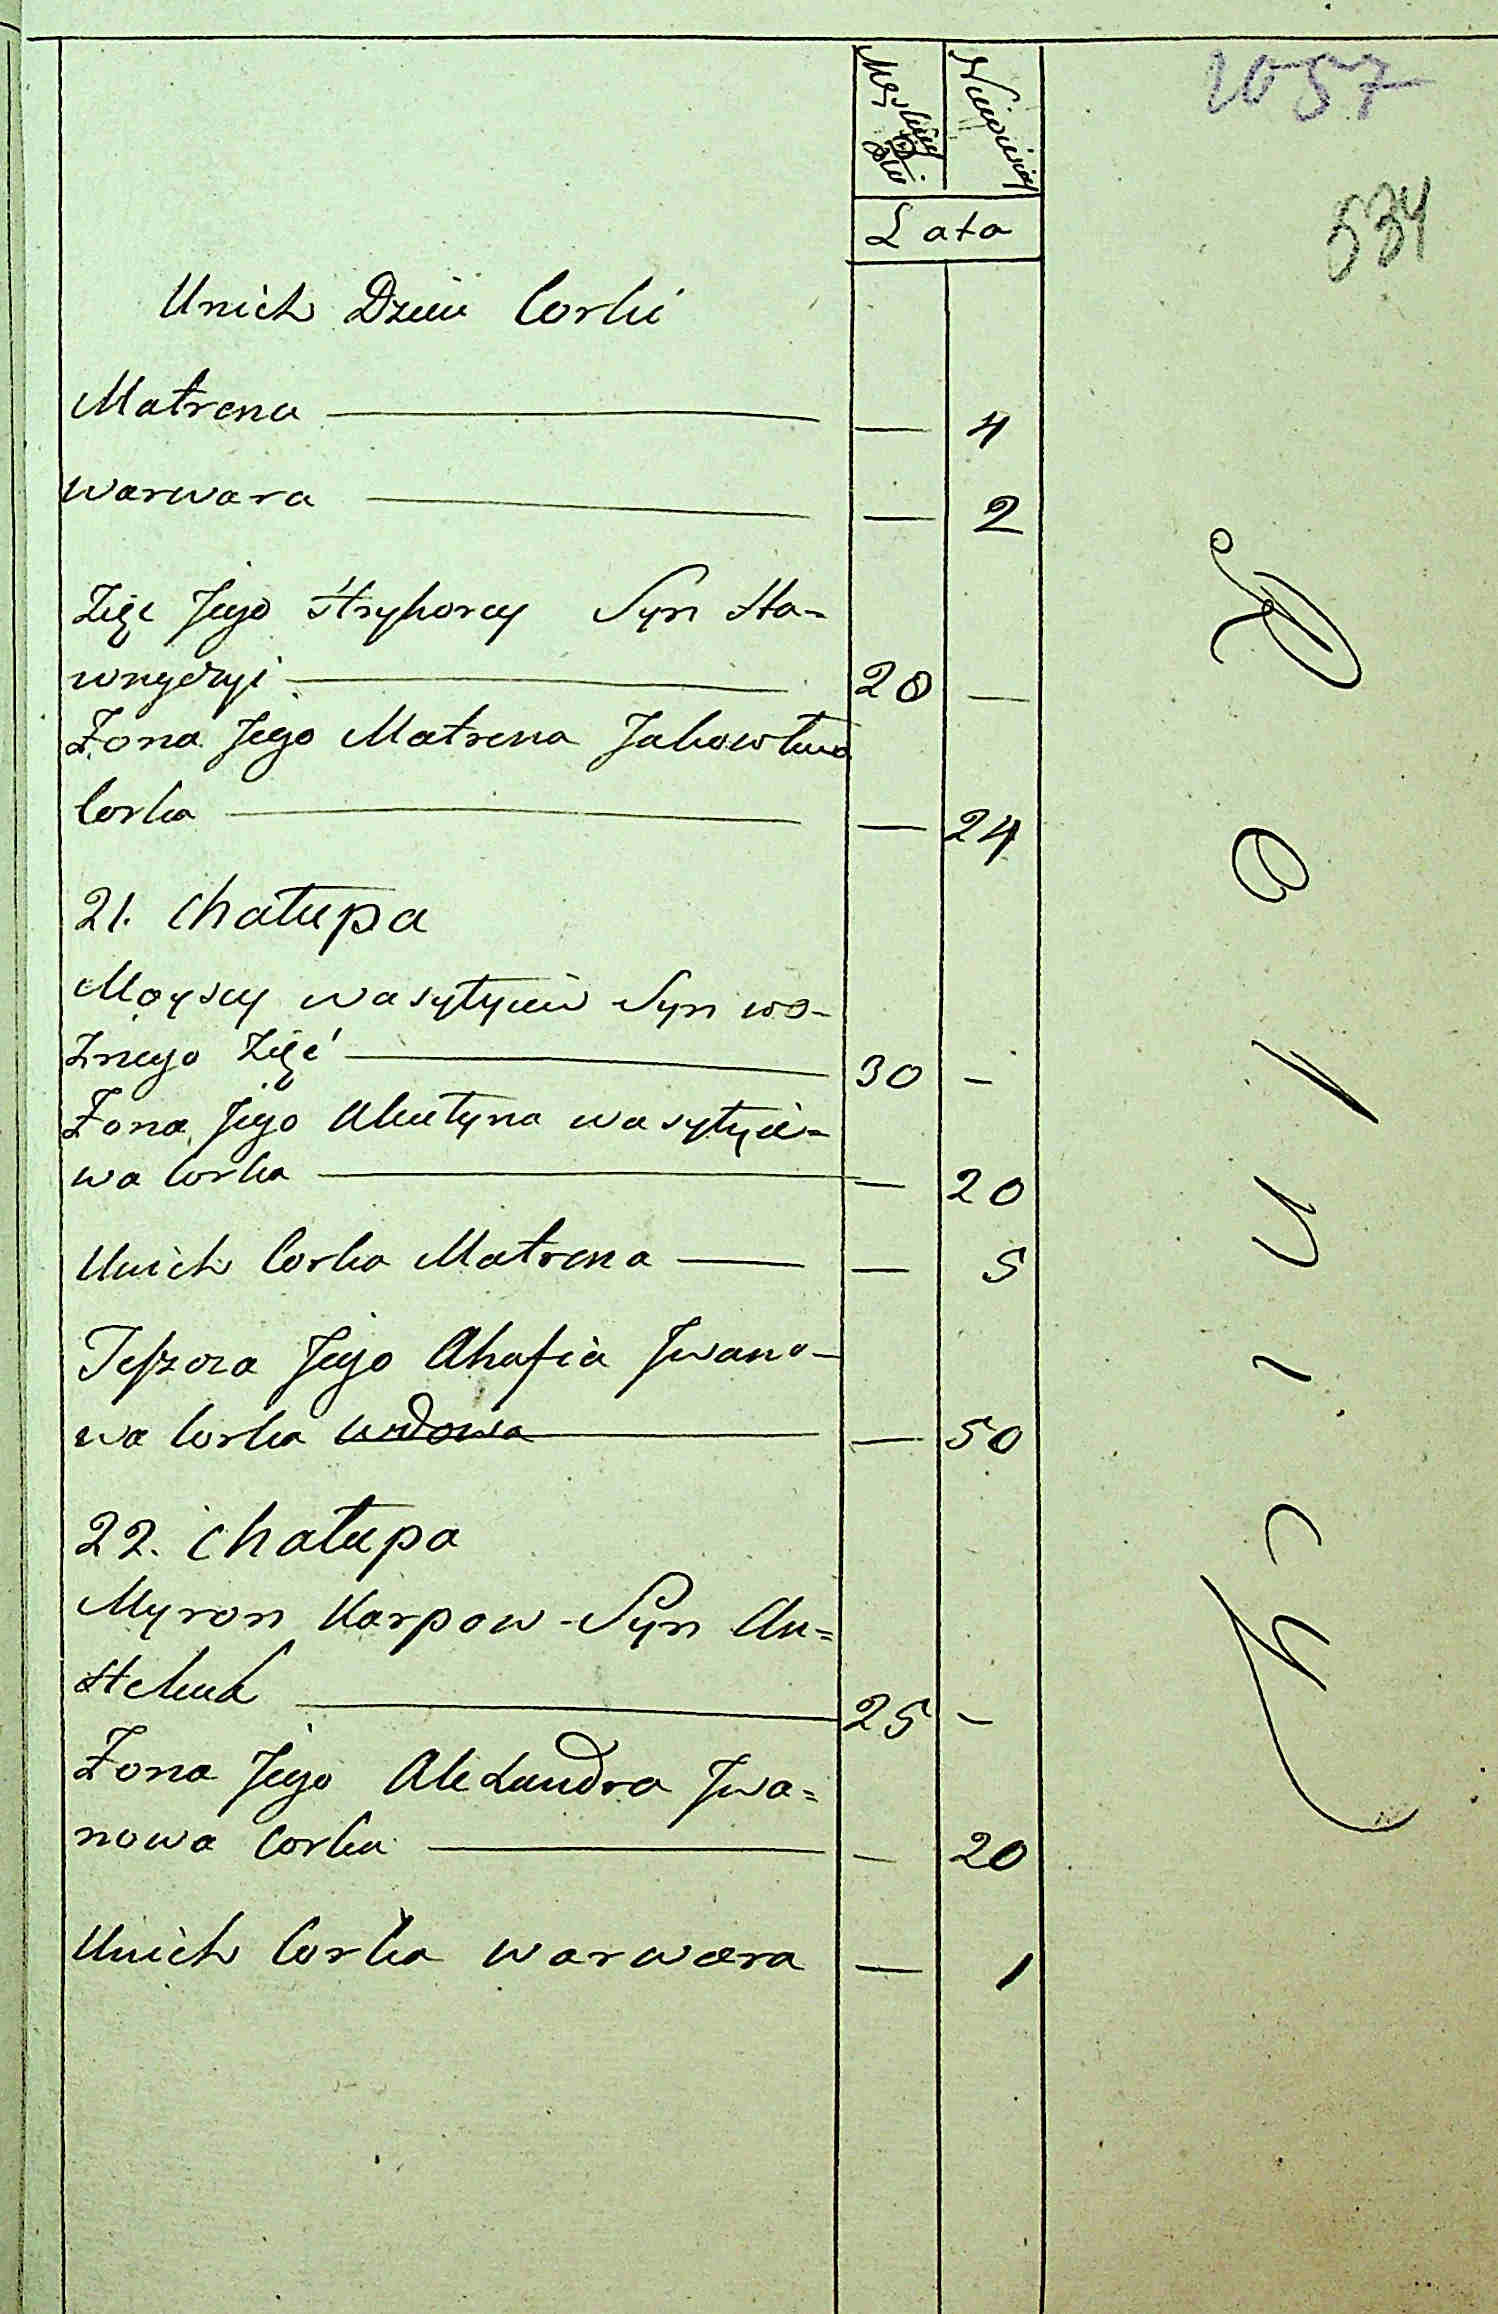 Męskiey Płci
Niewiesciey
1057
534
Lata
Unich Dzieci Corki
Matrena — 4
Warwara — 2
Zięć Jego Hryhorey Syn Ha=
wryłyi 28 —
Żona Jego Matrena Jakowlewa
Corka — 24
21. Chałupa
Moysey Wasylyiew Syn wo-
znego Zięć 30 —
Żona Jego Akulyna Wasylyie=
wa Corka — 20
Unich Corka Matrena — 5
Teszcza Jego Ahafia Jwano-
wa Corka Wdowa — 50
22. Chałupa
Myron Karpow Syn
25 —
Żona Jego Alexandra Jwa=
nowa Corka — 20
Unich Corka Warwara — 1